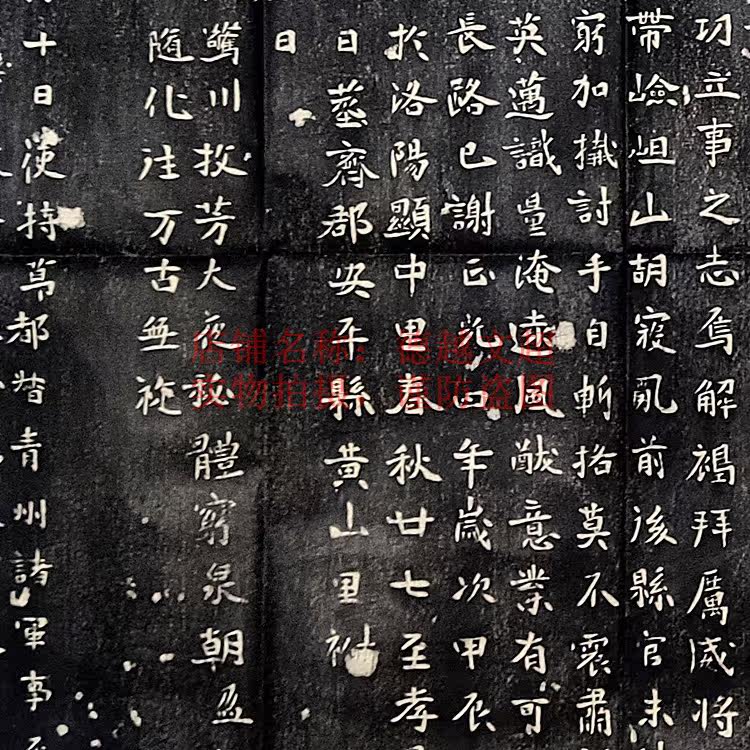 功立事之志焉解褐拜厲威將
帶嶮岨山胡寇亂前後縣官未
窮加擒討手自斬挌莫不震肅
英邁識量淹遠風猷意業有可
長路已謝正光四年歲次甲辰
於洛陽顯中里春秋廿七至孝
日葬齊郡安平縣黄山里祔
日
驚川投芳大夜秘體窮泉朝盈
隨化往万古無旋
十日使持節都督青州諸軍事
店铺名称：德越文超
实物拍摄，谨防盗图